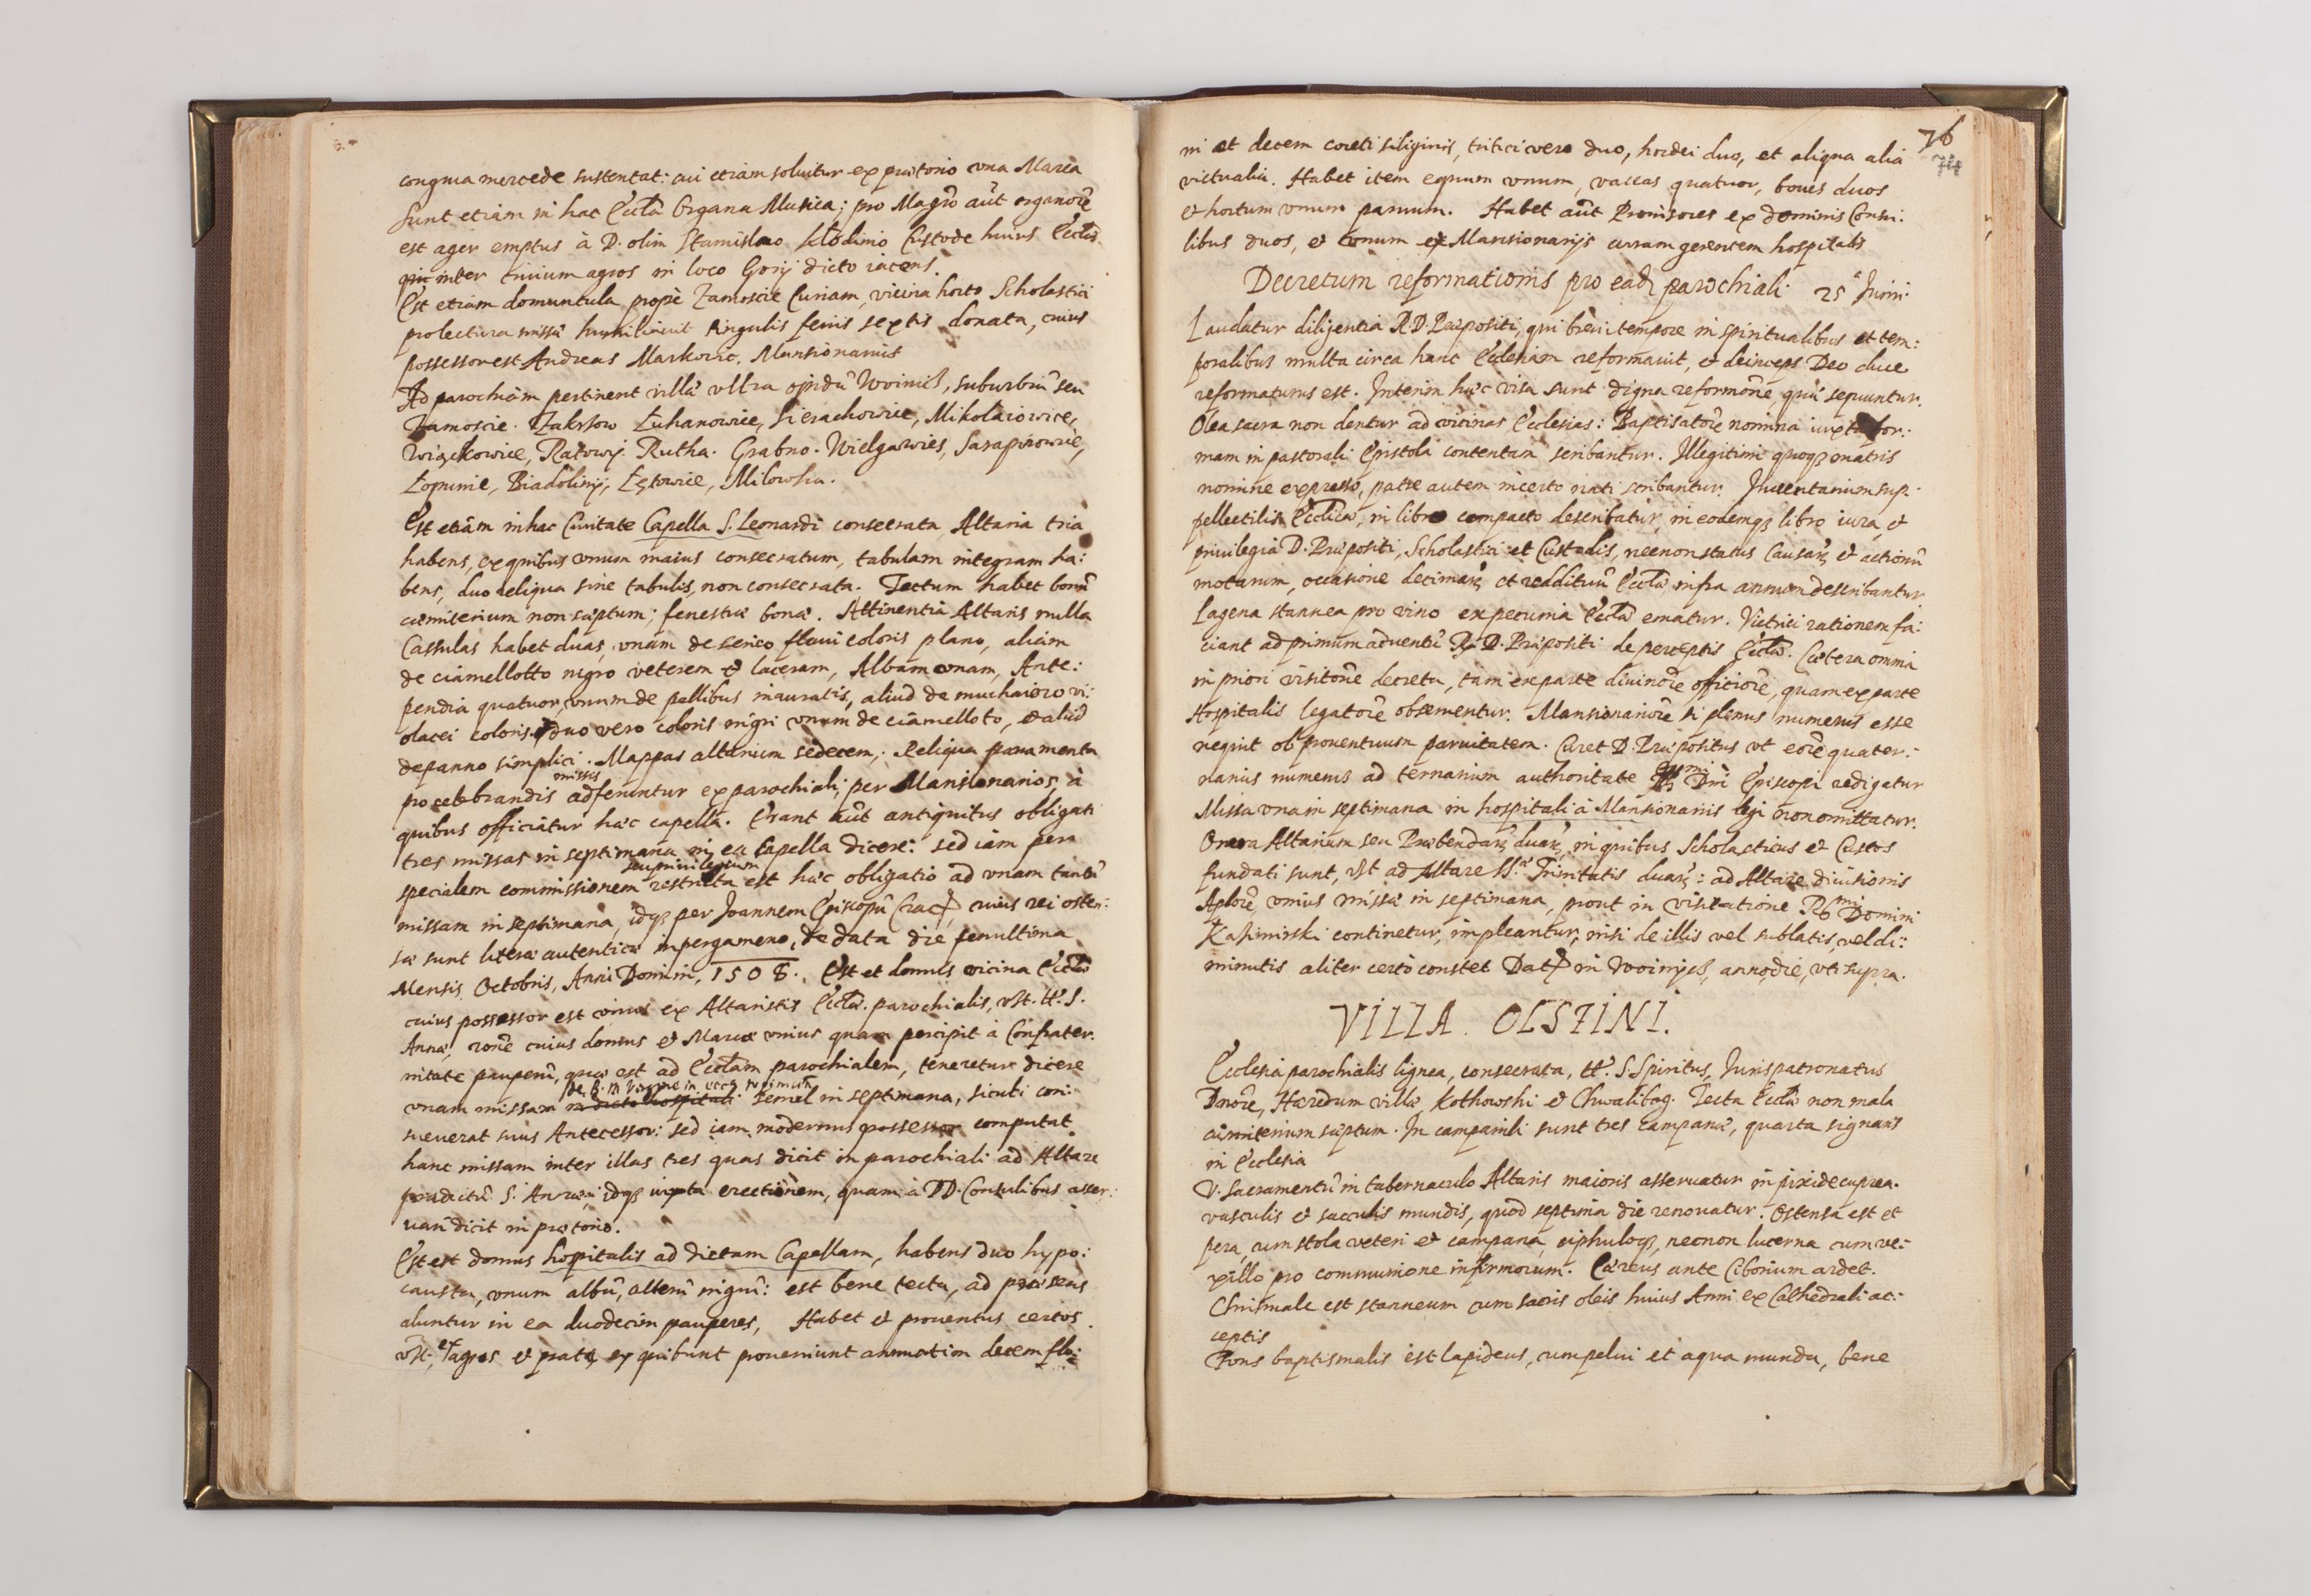 congrua mercede sustentat: cui etiam soluitur ex prætorio vna Marca
Sunt etiam in hac Eccla Organa Musica; pro Magro aūt organorē
est ager emptus à D. olim Stanislao Custode huius Eccliæ
inter triuium agros in loco Gory dicto iacens.
Est etiam domuncula propè Zamoscie Curiam, vicina horto Scholastici
pro lectura missæ singulis feriis sextis donata, cuius
possessor est Andreas Markowic, Mansionarius
Ad parochiam pertinent villæ vltra opidū Woinicz, suburbiū seu
Zamoscie. Zakrzow Łukanowice, Sierachowice, Mikołaiowice,
Więckowice, Ratowy. Rutha. Grabno. Wielgawies, Sarapinowie,
Łopunie, Biadoliny, Łętowice, Milowka.
Est etiam in hac Ciuitate Capella S. Leonardi consecrata, Altaria tria
habens, ex quibus vnum maius consecratum, tabulam integram ha:
bens, duo reliqua sine tabulis, non consecrata. Tectum habet bonū
cæmiterium non sæptum; fenestræ bonæ. Attinentia Altaris nulla
Casulas habet duas, vnam de serico flaui coloris plano, aliam
de ciamellotto nigro veterem et laceram, Albam vnam, Ante:
pendia quatuor, vnum de pellibus inauratis, aliud de muchaiero vi:
olacei coloris, duo vero coloris nigri vnum de ciamelloto, et aliud
de panno simplici. Mappas altarium sedecem. Reliqua paramenta
missis
pro celebrandis adferuntur ex parochiali, per Mansionarios, à
quibus officiatur hæc capella. Erant aūt antiquitus obligati
tres missas in septimana in ea Capella dicere: sed iam per
seu priuilegium
specialem commissionem restricta est hæc obligatio ad vnam tantū
missam in septimana, idqȝ per Joannem Episcopū Crac, cuius rei osten:
sæ sunt literæ autenticæ in pergameno, de data die penultima
Mensis Octobris, Anni Domini, 1508. Est et domus vicina Eccłæ
cuius possessor est vnus ex Altaristis Eccłæ parochialis, vst. tt. S.
Annæ, rōne cuius domus et Marcæ vnius quam percipit à Confrater:
nitate pauperū, quæ est ad Eccłam parochialem, teneretur dicere
vnam missam in dicto hospitali semel in septimana, sicuti con:
sueuerat suus Antecessor: sed iam modernus possessor computat
hanc missam inter illas tres quas dicit in parochiali ad Altare
prædictū S. Annæ, idqȝ iuxta erectionem, quam à DD. Consulibus asser:
uari dicit in prætorio.
Est et domus hospitalis ad dictam Capellam, habens duo hypo:
causta, vnum albū, alterū nigrū: est bene tecta, ad præsens
aluntur in ea duodecim pauperes, Habet et prouentus certos.
vst, et agros et prata, ex quibus proueniunt annuatim decem flo:
76
ni et decem coreti siliginis, tritici vero duo, hordei duo, et aliqua alia
victualia. Habet item equum vnum, vaccas quatuor, boues duos
et hortum vnum paruum. Habet aūt Prouisores ex dominis Consu:
libus duos, et vnum ex Mansionarijs curam gerentem hospitalis
Decretum reformationis pro eadȝ parochiali 25ª Junii.
Laudatur diligentia R. D. Præpositi, qui breui tempore in spiritualibus et tem:
poralibus multa circa hanc Ecclesiam reformauit, et deinceps Deo duce
reformaturus est. Interim hæc visa sunt digna reformōne, quæ sequuntur.
Olea sacra non dentur ad vicinas Ecclesias: Baptisatorē nomina iuxta for:
mam in pastorali Epistola contentam scribantur. Illegitimi quoqȝ matris
nomine expresso, patre autem incerto nati scribantur. Inuentarium sup:
pellectilis Eccłicæ, in libro compacto describatur, in eodemqȝ libro iura, et
priuilegia D. Præpositi, Scholastici et Custodis, necnon status Causarȝ et actionū
motarum, occasione decimarȝ et reddituū Eccłæ infra annum describantur
Lagena stannea pro vino ex pecunia Eccłæ ematur. Vitrici rationem fa:
ciant ad primum aduentū R. D. Præpositi de perceptis Eccłæ. Cætera omnia
in priori visitōne decreta, tam ex parte diuinorē officiorē, quam ex parte
Hospitalis legatorē obseruentur. Mansionariorē si plenus numerus esse
nequit ob prouentuum paruitatem. Curet D. Præpositus vt eorē quater:
narius numerus ad ternarium authoritate Dni Episcopi redigatur
Missa vna in septimana in hospitali à Mansionariis legi non omittatur.
Onera Altarium seu Præbendarȝ duarȝ, in quibus Scholasticus et Custos
fundati sunt, vst ad Altare SS. Trinitatis duarȝ: ad Altare diuisionis
Aplorē vnius missæ in septimana, prout in visitatione Rmi Domini
Kazimirski continetur, impleantur, nisi de illis vel sublatis, vel di:
minutis aliter certò constet Dat in Woinycz, anno, die, vti supra.
VILLA OLSTINI.
Ecclesia parochialis lignea, consecrata, tt. S. Spiritus, Iurispatronatus
Dnorē, Hæredum villæ Kothowski et Chwalibog. Tecta Eccłæ non mala
cæmiterium sæptum. In campanili sunt tres campanæ, quarta signans
in Ecclesia
V. Sacramentū in tabernaculo Altaris maioris asseruatur in pixide cuprea.
vasculis et sacculis mundis, quod septima die renouatur. Ostensa est et
pera, cum stola veteri et campana, ciphuloqȝ, necnon lucerna cum ve:
xillo pro communione infirmorum. Cæreus ante Ciborium ardet.
Chrismale est stanneum cum sacris oleis huius Anni ex Cathedrali ac:
ceptis
Fons baptismalis est lapideus, cum pelui et aqua munda, bene